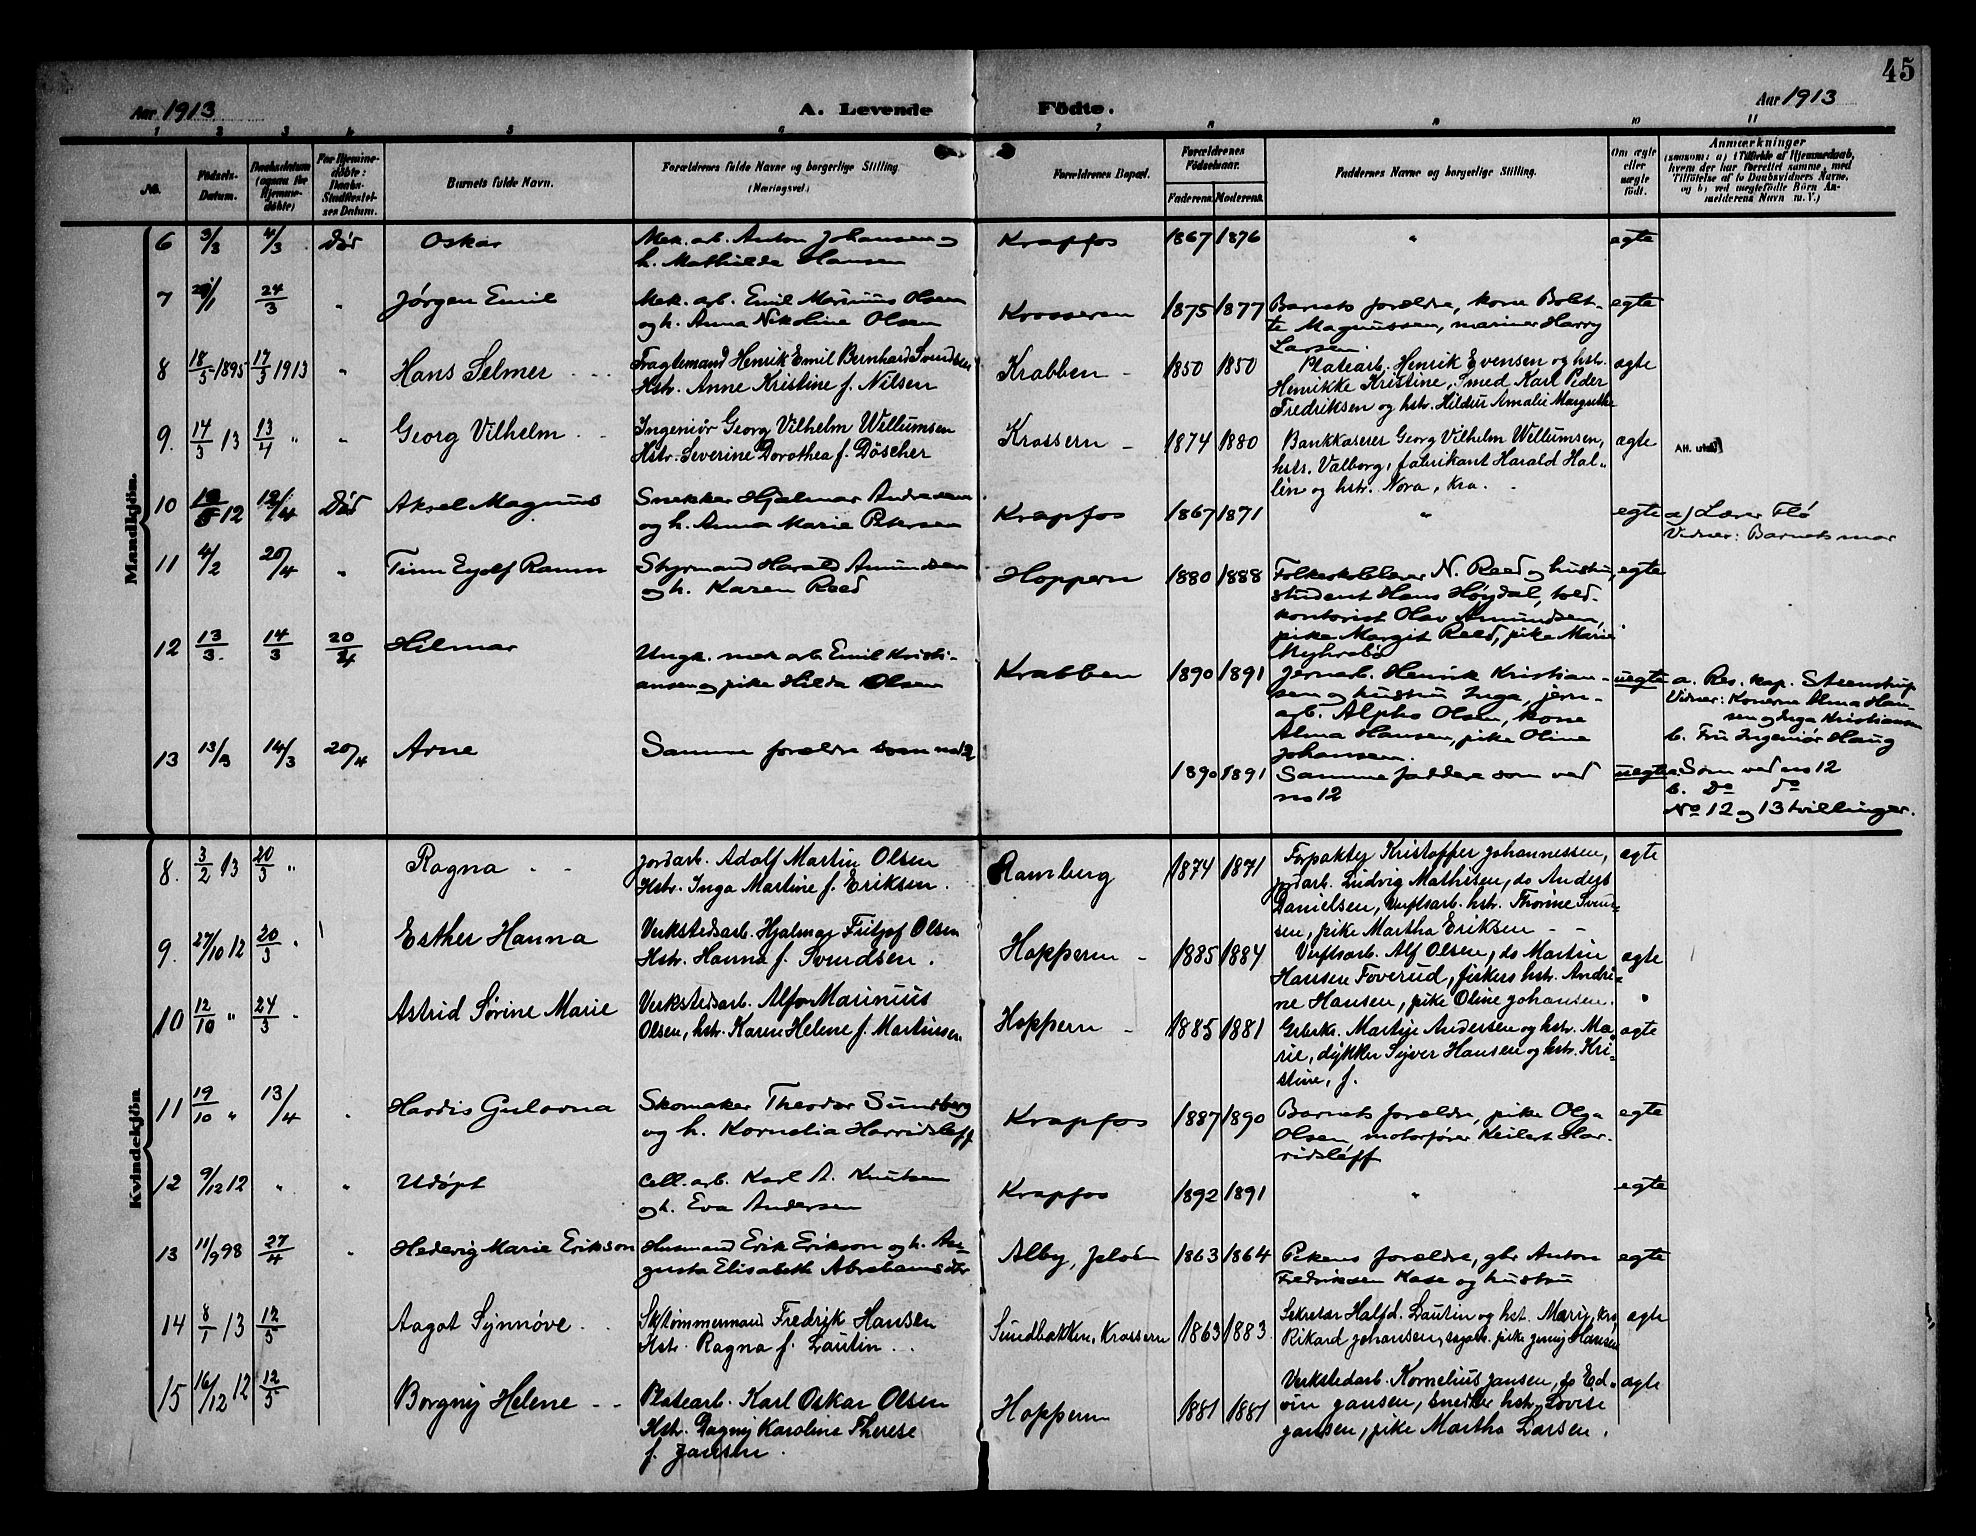 45
Aar 1913
A. Levende Fødte.
Aar 1913
1 2 3 4 5 6 7 8 9 10 11
No.
Fødsels-
Datum.
Daabsdatum
(ogsaa for
Hjemme-
døbte)
For Hjemme-
døbte:
Daabs-
Stadfæstel-
ses Datum.
Barnets fulde Navn.
Forældrenes fulde Navne og borgerlige Stilling
(Næringsvei.)
Forældrenes Bopæl.
Forældrenes
Fødselsaar.
Faderens. Moderens.
Faddernes Navne og borgerlige Stilling.
Om ægte
eller
uægte
født.
Anmærkninger
(saasom: a) i Tilfælde af Hjemmedaab,
hvem der har forrettet samme, med
Tilføielse af to Daabsvidners Navne,
og b) ved uegtefødte Børn An-
melderens Navn m. V.)
Mandkjøn.
6 3/3 4/3 Død Oskar Mek. arb. Anton Johansen og
h. Mathilde Hansen
Krapfos 1867 1876 " egte
7 /1 24/3 " Jørgen Emil Mek. arb. Emil Marinius Olsen
og h. Anna Nikoline Olsen
Krosseren 1875 1877 Barnets forældre, kone Bolet-
te Magnussen, mariner Harry
Larsen. egte
8 18/5 1895 17/3 1913 " Hans Selmer Fragtemand Henrik Emil Bernhard Svendsen
Hstr. Anne Kristine f. Nilsen
Krabben 1850 1850 Platearb. Henrik Evensen og hstr.
Henrikke Kristine, Smed Karl Peder
Fredriksen og hstr. Hildur Amalie Margrethe ægte
9. 14/3 13 13/4 " " Georg Vilhelm Ingeniør Georg Vilhelm Willumsen
Hstr. Severine Dorothea f. Döscher
Krossern 1874 1880 Bankkaserer Georg Vilhelm Willumsen,
hstr. Valborg, fabrikant Harald Hal-
lén og hstr. Nora, Kra. ægte Att. utst.
10 12 /4 Død Aksel Magnus Snekker Hjalmar Andresen
og h. Anna Marie Petersen
Krapfos 1867 1871 " egte a) Lærer Flø
Vidner: Barnets mor
11 4/2 20/4 " Finn Eyolf Ramm Styrmand Harald Amundsen
og h. Karen Reed
Hoppern 1880 1888 Folkeskolelærer N. Reed og hustru,
student Hans Høydal, told-
kontorist Olav Amundsen,
pike Margit Reed, pike Marie
Myhrebø egte
12 13/3. 14/3 20/4 Hilmar Ungk. mek arb Emil Kristi-
ansen og pike Hilda Olsen
Krabben 1890 1891 Jernarb. Henrik Kristian-
sen og hustru Inga, jern-
arb. Alpho Olsen, kone
Alma Hansen, pike Oline
Johansen. uegte a. Res. kap. Steenstrup
Vidner: Konerne Alma Han-
sen og Inga Kristiansen
b. Fru Ingeniør Haug
13 13/3 14/3 20/4 Arne Samme forældre som no 12
1890 1891 Samme faddere som ved
no 12 uegte a. Som ved no 12
b. Do do
No 12 og 13 tvillinger.
Kvindekjøn
8. 3/2 13 20/3 " Ragna Jordarb. Adolf Martin Olsen
Hstr. Inga Martine f. Eriksen.
Ramberg 1874 1871 Forpakter Kristoffer Johannessen,
jordarb. Ludvig Mathisen, do Anders
Danielsen, Verftsarb. hstr. Thorine Sven-
sen, pike Martha Eriksen ægte
9. 27/10 12 20/3 " Esther Hanna Verkstedsarb. Hjalmar Fritjof Olsen
Hstr. Hanna f. Svendsen.
Hoppern 1885 1884 Verftsarb. Alf Olsen, do Martin
Hansen Foverud, fiskers hstr. Andri-
ne Hansen, pike Oline Johansen. ægte
10 12/10 " 24/3 Astrid Sørine Marie Verkstedsarb. Alf Marinius
Olsen, hstr. Karen Helene f. Martinsen.
Hoppern 1885 1881 Grbrkr. Martin Andersen og hstr. Ma-
rie, dykker Syver Hansen og hstr. Kri-
stine, f. ægte
11 19/10 " 13/4 Hardis Gulovna Skomaker Theodor Sundberg
og h. Kornelia Harridsleff
Krapfos 1887 1890 Barnets forældre, pike Olga
Olsen, motorfører Keilert Har-
ridsleff egte
12 9/12 12 " " Udøpt Cell. arb. Karl A. Knutsen
og h. Eva Andersen
Krapfos 1892 1891 " egte
13 11/9 98 27/4 " Hedevig Marie Erikson Husmand Erik Erikson og h. Au-
gusta Elisabeth Abrahamsdtr
Alby, Jeløen 1863 1864 Pikens forældre, gbr Anton
Fredriksen Kase og hustru egte
14 8/1 13 12/5 Aagot Synnøve Sktømmermand Fredrik Hansen
Hstr. Ragna f. Lautin
Sundbakken, Krossern 1863 1883 Sekretær Halfd. Lautin og hst. Mary, Kra,
Rikard Johansen, sagarb. pike Jenny Hansen ægte
15 16/12 12 12/5 Borgny Helene Platearb. Karl Oskar Olsen
Hstr. Dagny Karoline Therese
f. Jansen.
Hoppern 1881 1881 Verkstedarb. Kornelius Jansen, do Ed-
vin Jansen, snedker hstr. Lovise
Jansen, pike Martha Larsen. ægte